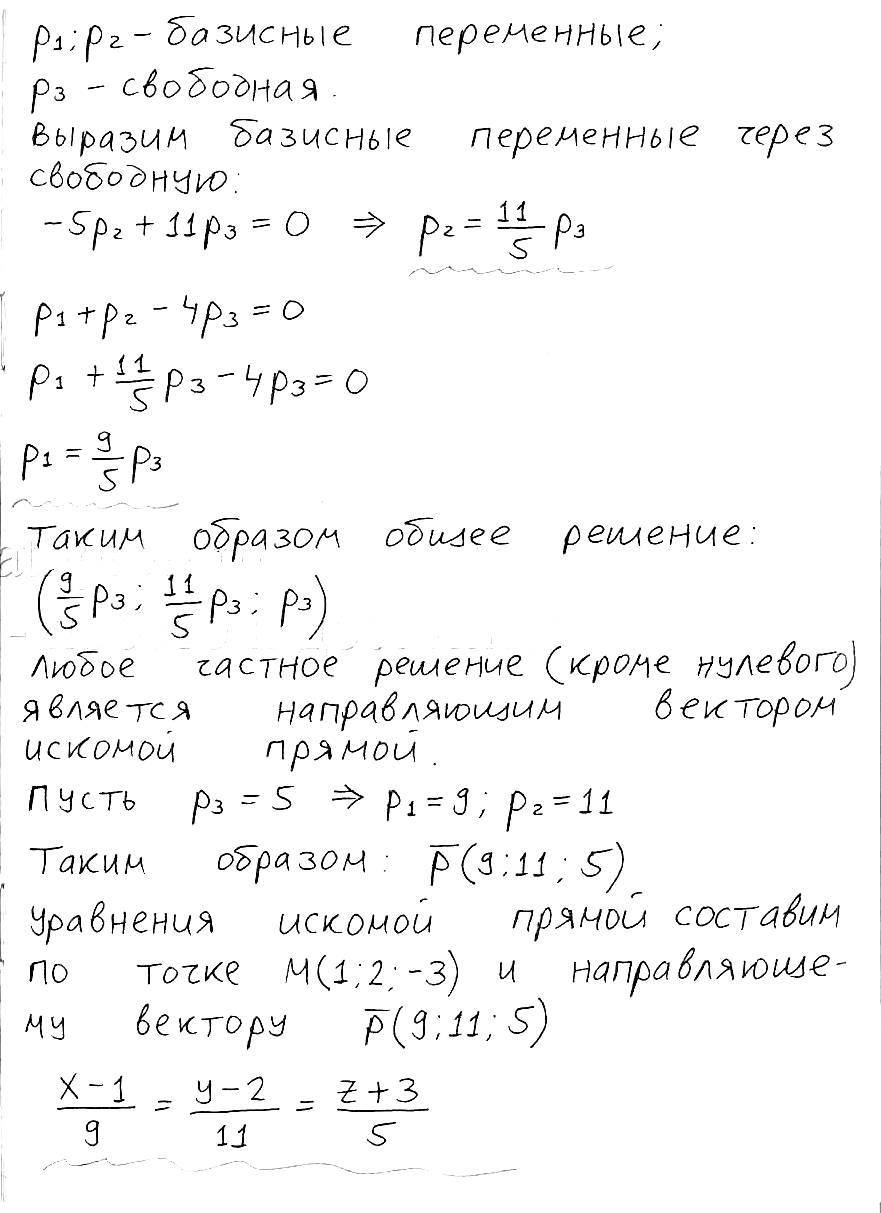 p₁; p₂ – базисные переменные;
p₃ – свободная.
выразим базисные переменные через
свободную:
-5p₂ + 11p₃ = 0 ⇒ p₂ = 11/5 p₃
p₁ + p₂ - 4p₃ = 0
p₁ + 11/5 p₃ - 4p₃ = 0
p₁ = 9/5 p₃
Таким образом общее решение:
(9/5 p₃; 11/5 p₃; p₃)
любое частное решение (кроме нулевого)
является направляющим вектором
искомой прямой.
Пусть p₃ = 5 ⇒ p₁ = 9; p₂ = 11
Таким образом: p̅(9; 11; 5)
уравнения искомой прямой составим
по точке M(1; 2; -3) и направляюще-
му вектору p̅(9; 11; 5)
(x-1)/9 = (y-2)/11 = (z+3)/5